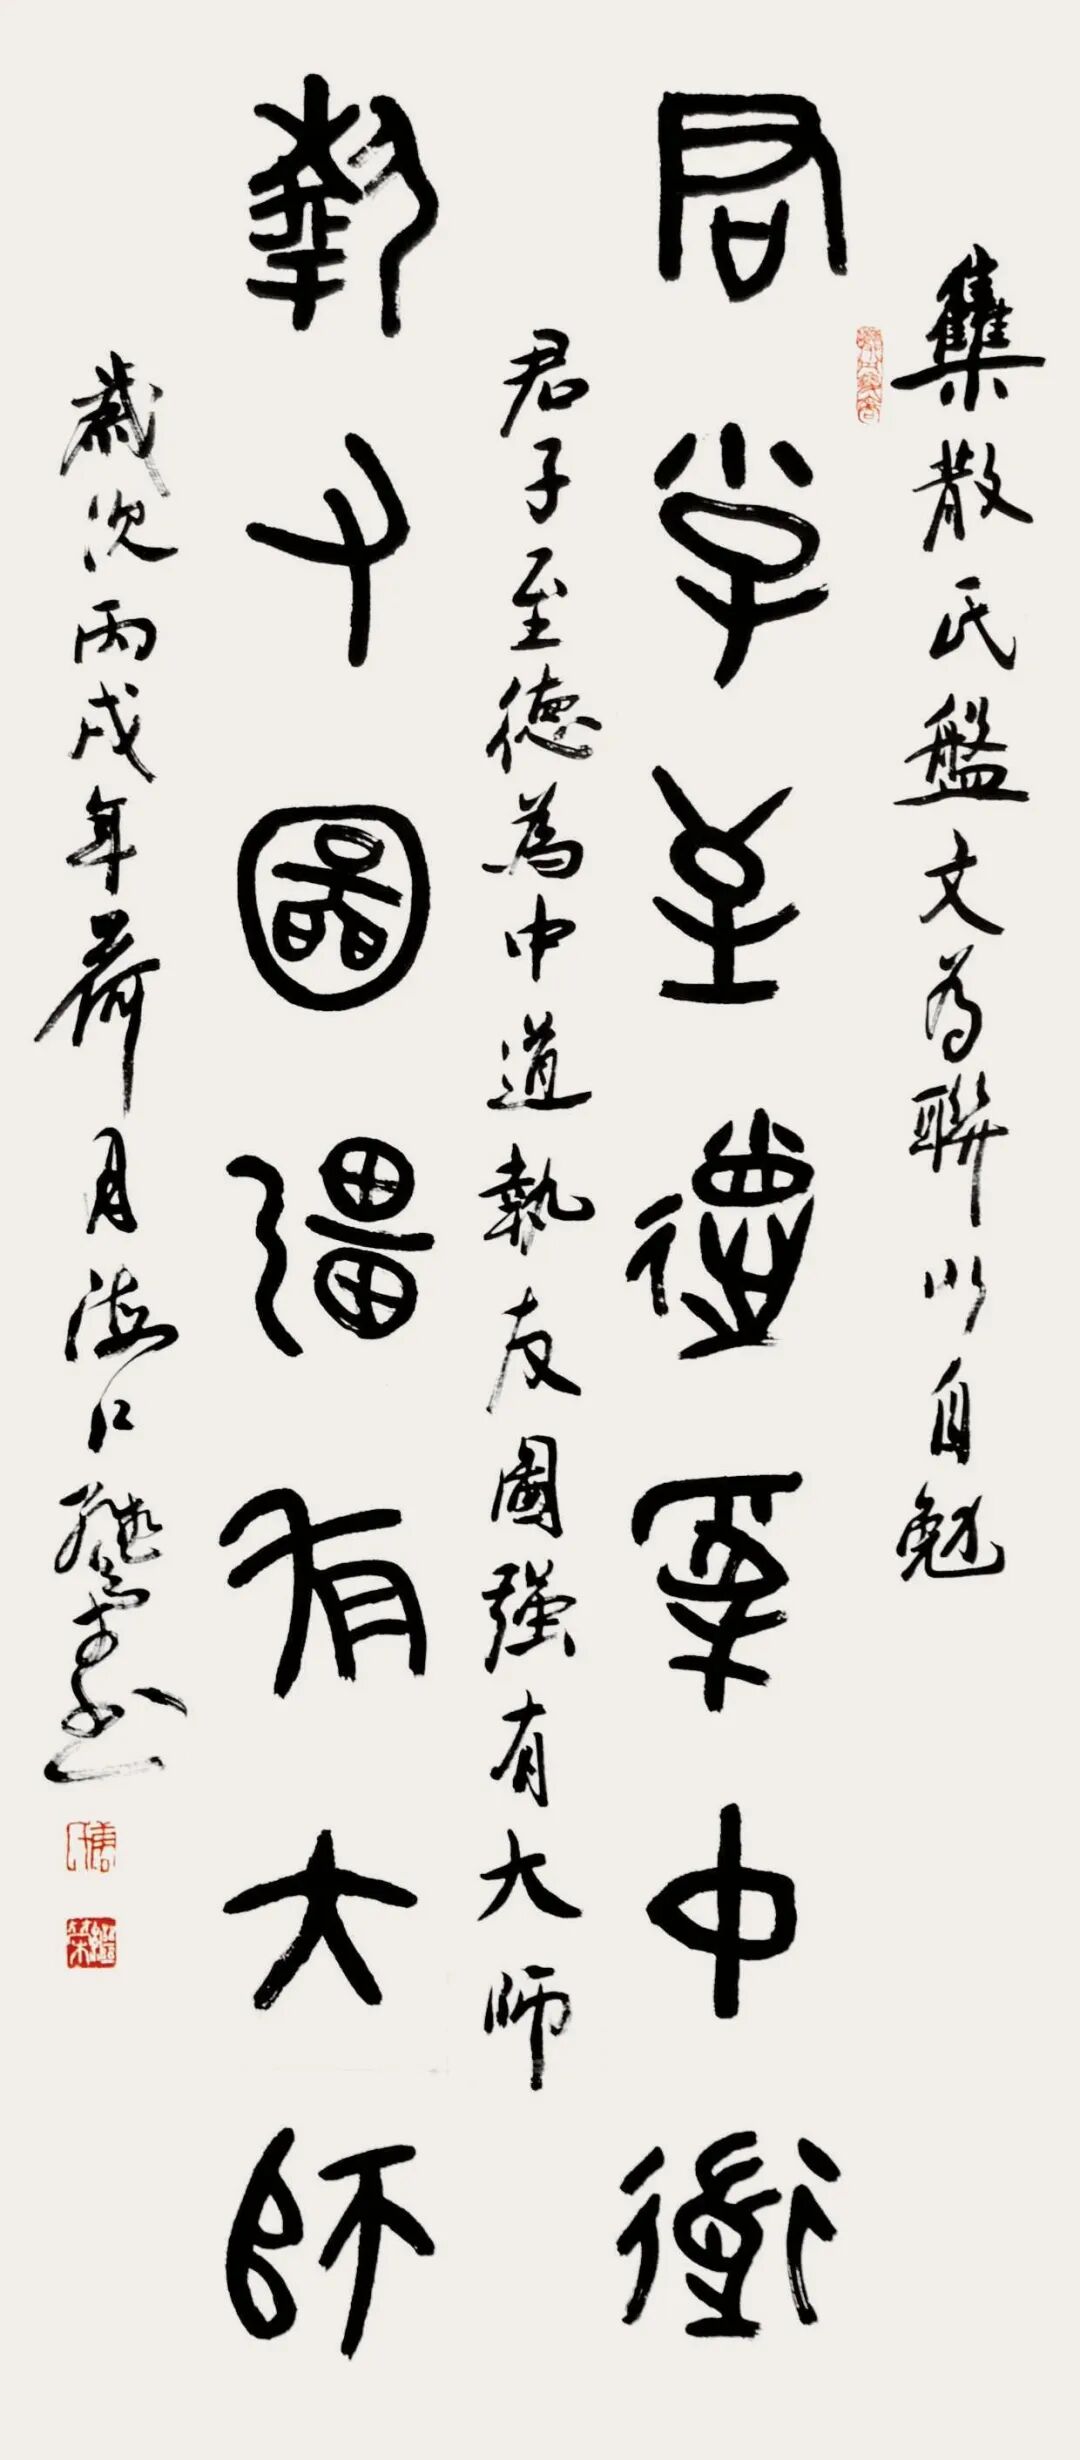 集散氏盤文為聯以自勉
君子至德為中道
君子至德為中道執友圖强有大師
執友圖彊有大師
歲次丙戌年荷月海口繼榮书
繼榮